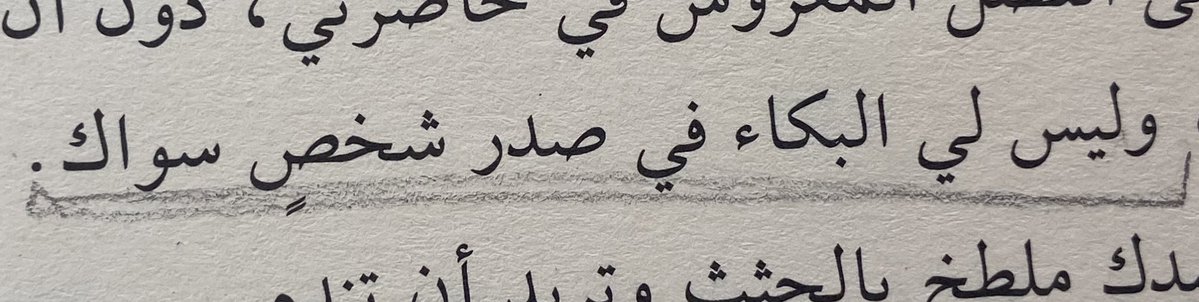 في خاصرتي، دون أن
وليس لي البكاء في صدر شخصٍ سواك.
ملطخ بالجثث وتريد أن